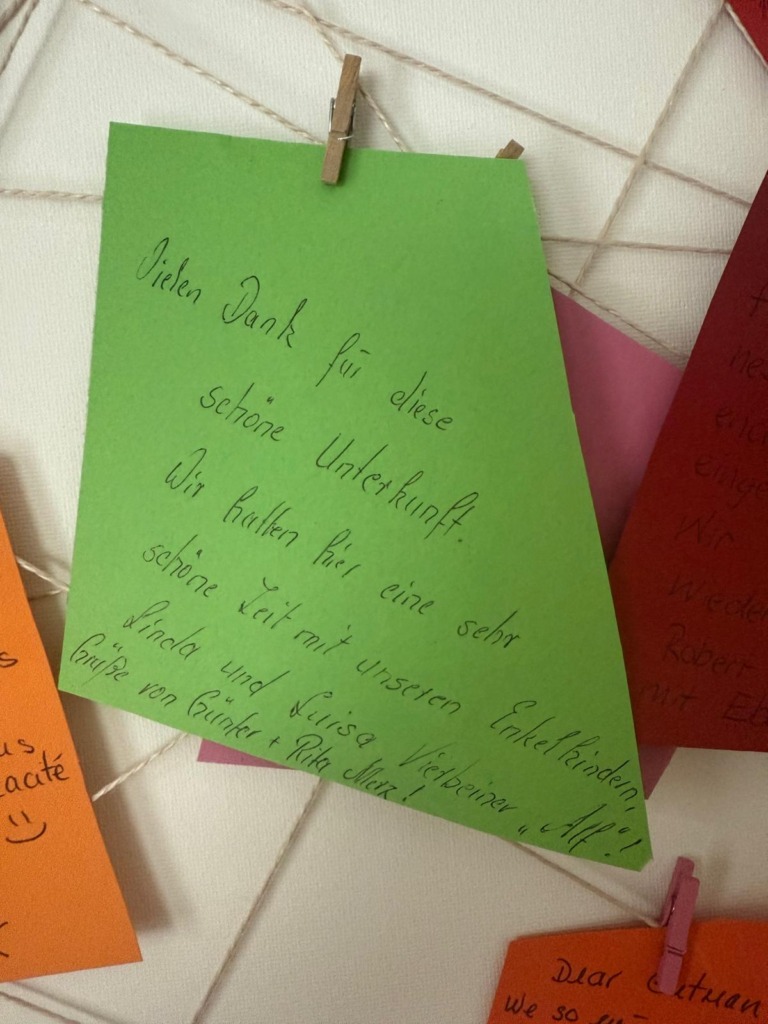 Vielen Dank für diese
schöne Unterkunft.
Wir hatten hier eine sehr
schöne Zeit mit unseren Enkelkindern,
Linda und Luisa Vierbeiner „Alf"!
Grüße von Günter + Rita Merz!
Wir
Robert
mit
Dear
We so